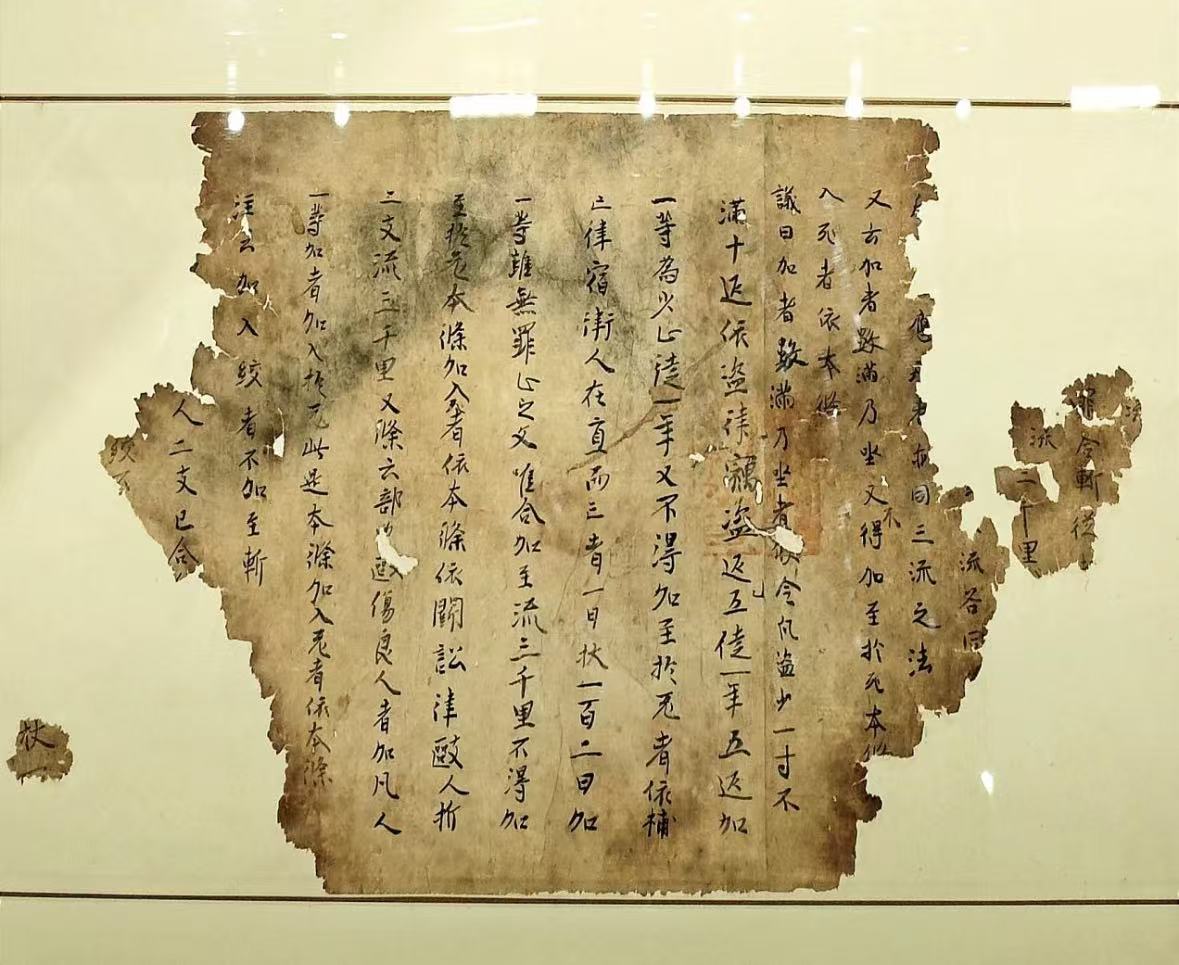 合斬從
流
二千里
流各同
應 同三流之法
又云加者數滿乃坐又不得加至於死本條
入死者依本條
議曰加者數滿乃坐者假令凡盜少一寸不
滿十疋依盜律竊盜疋五徒一年五疋加
一等為少止徒一年又不得加至於死者依捕
亡律宿衛人在直而亡者一日杖一百二日加
一等雖無罪止之文唯合加至流三千里不得加
至於死本條加入死者依本條依鬪訟律毆人折
二支流三千里又條云部 毆傷良人者加凡人
一等加者加入於死此是本條加入死者依本條
注云加入絞者不加至斬
人二支已合
絞
杖一